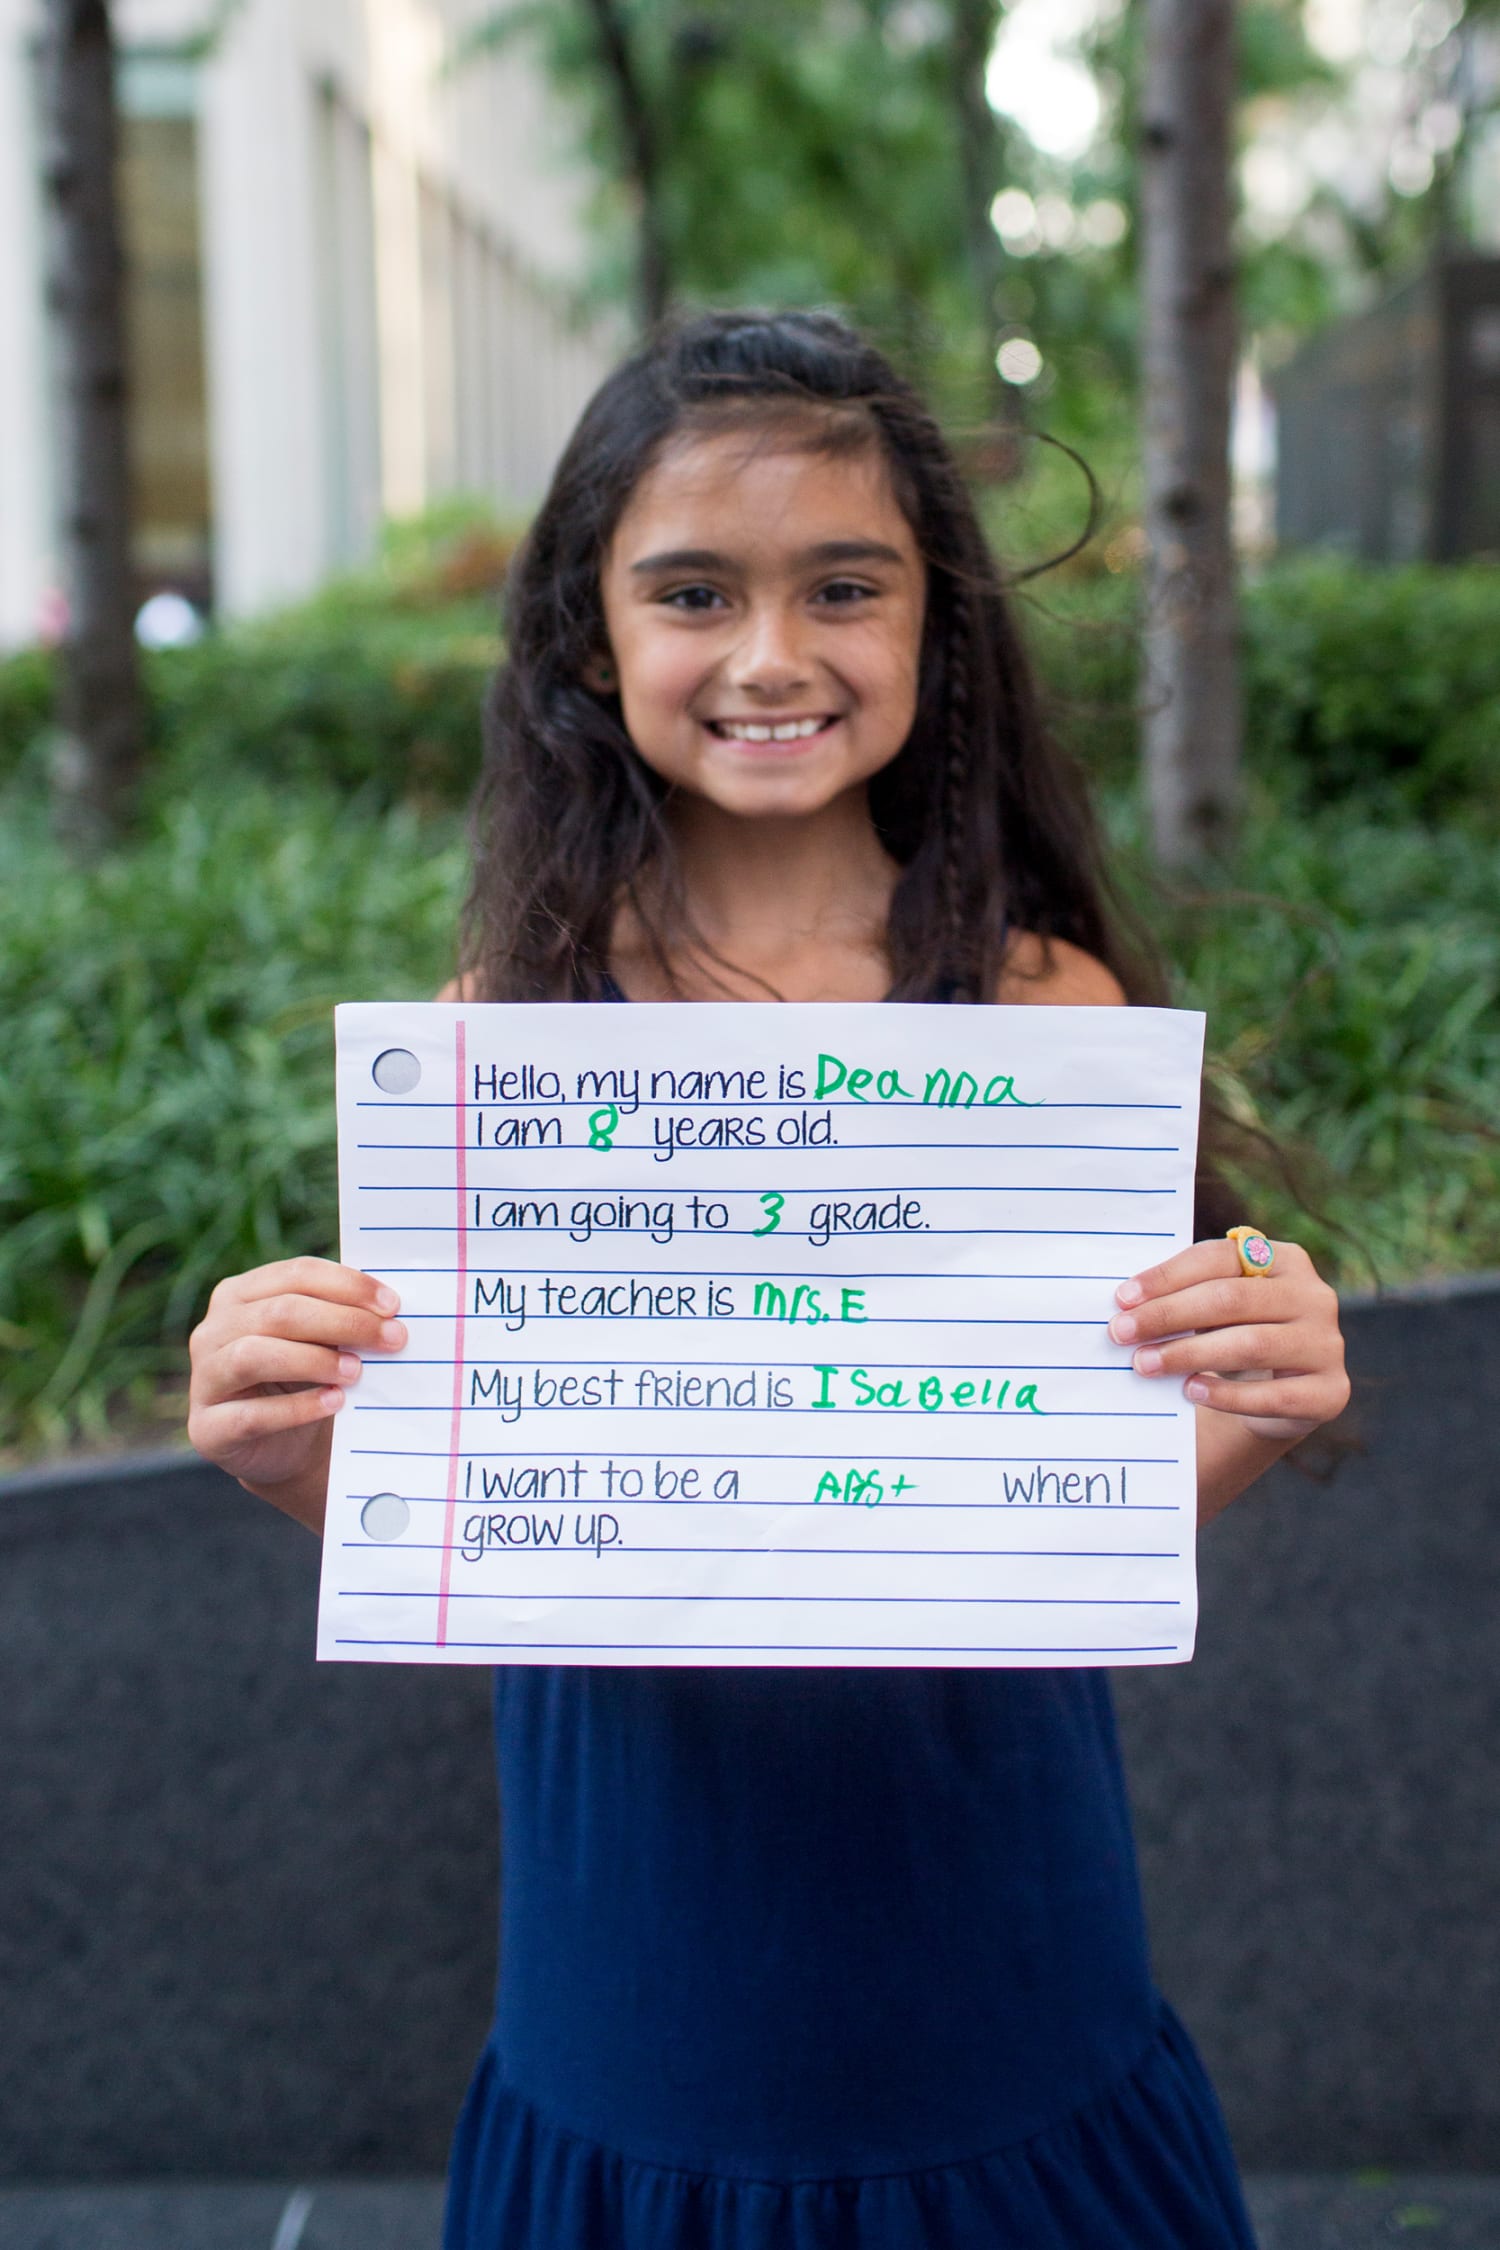 Hello, my name is Deanna
I am 8 years old.
I am going to 3 grade.
My teacher is mrs. E
My best friend is ISaBella
I want to be a when I
grow up.